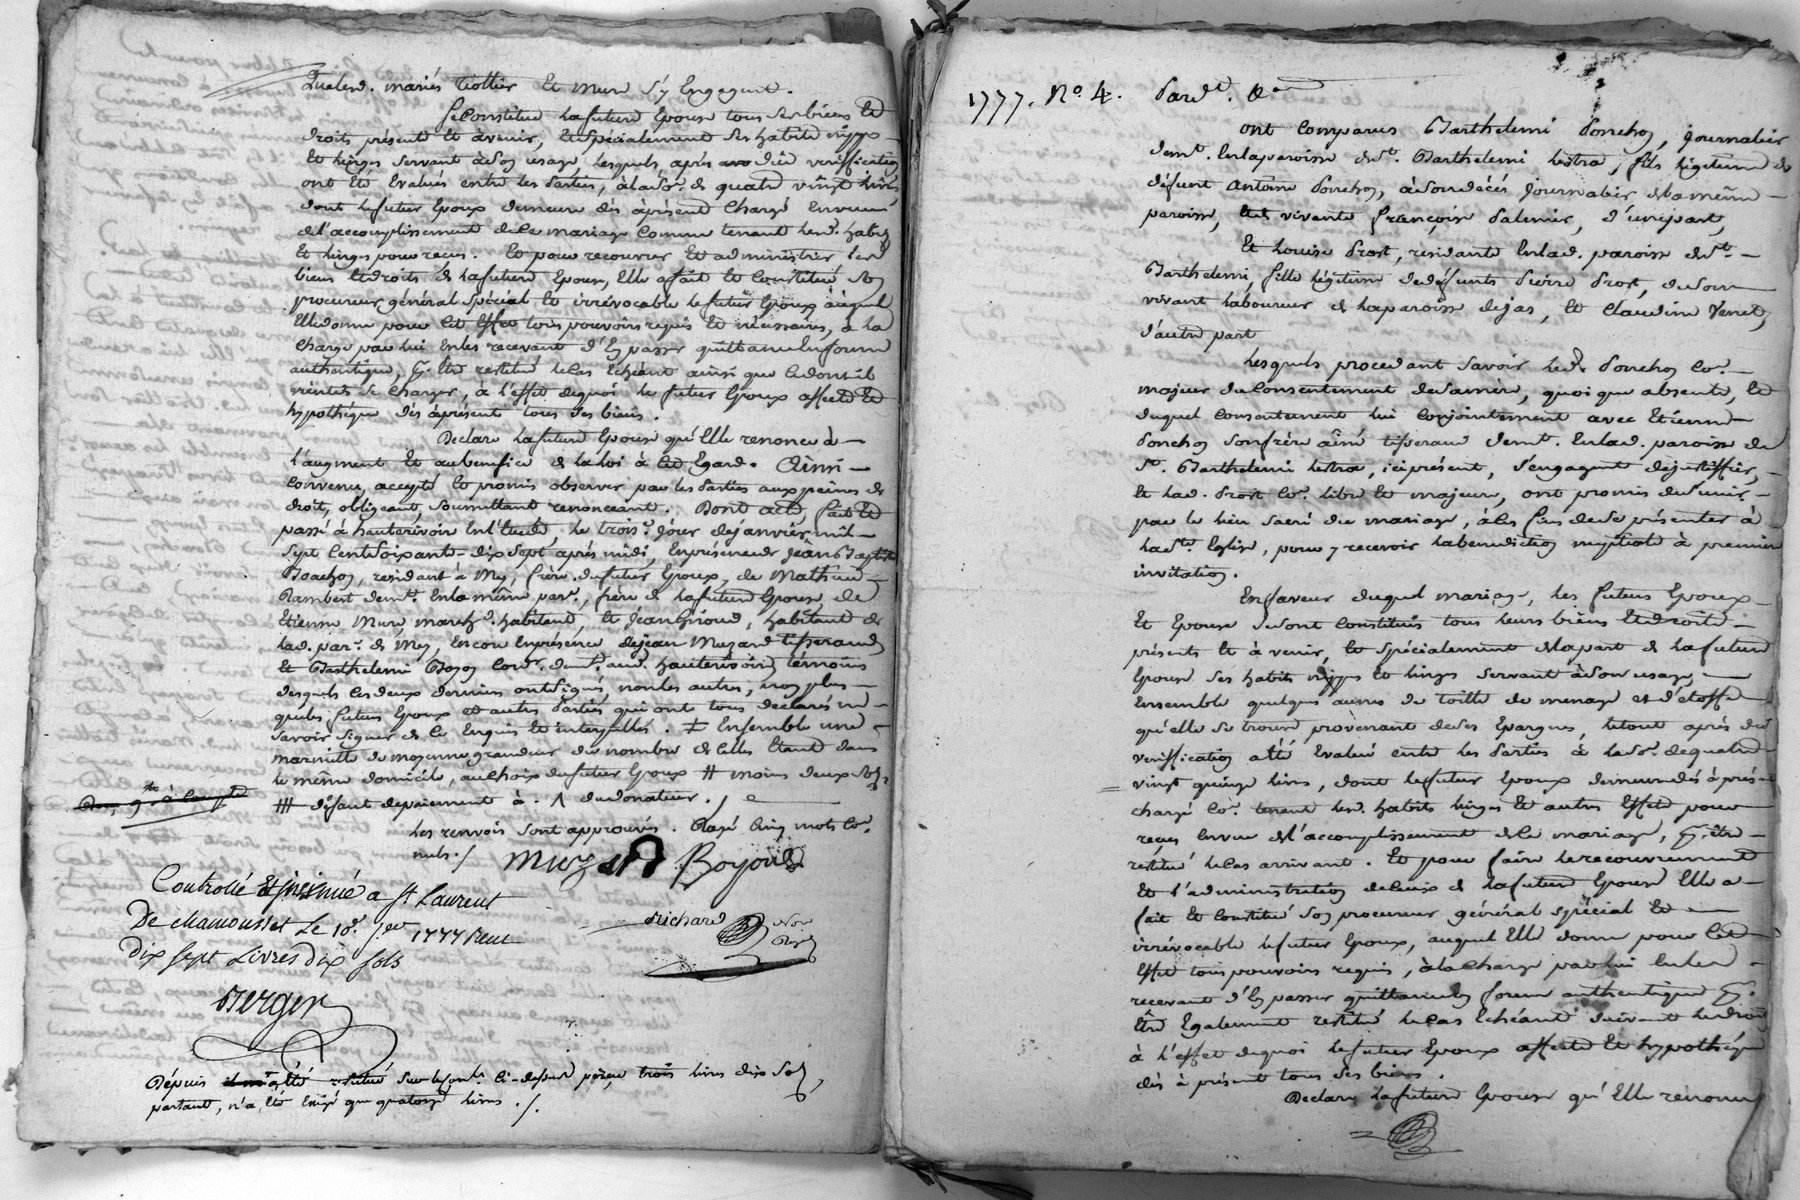 mariés Tiollier Et Mure s'y Engagent.
Se Constitue la future Epouse tous ses biens Et
droits présents Et àvenir, Et spécialement ses habits nippes
Et linges servant à son usage lesquels après due veriffication
ont Eté Evalués entre les Parties, à la so. de quatre vingt livres
dont le futur Epoux demeure dès àprésent Chargé
de l'accomplissement de Ce mariage Comme tenant lesd. habits
Et linges pour reçus. Et pour recouvrer Et administrer les
biens Et droits de la future Epouse, Elle a fait Et Constitué son
procureur général spécial Et irrévocable le futur Epoux auquel
Elle donne pour Cet Effet tous pouvoirs requis Et nécessaires, à la
Charge par lui En les recevant d'En passer quittance En forme
authentique, pr. Etre restitué le Cas Echéant ainsi que
de Charger, à l'effet de quoi le futur Epoux affecte Et
hypothéque dès àprésent tous ses biens.
Declare la future Epouse qu'Elle renonce à
l'augment Et au benefice de la loi à Cet Egard. Ainsi
Convenu, accepté Et promis observer par les Parties aux peines de
droit, obligeant, soumettant renonceant. Dont acte, fait Et
passé à hauterivoire En l'Etude, le trois. jour de janvier mil
sept Cent soixante-dix sept après midi, En présence de Jean Baptiste
residant à Mey, frère du futur Epoux, de Mathieu
Rambert demt. En la même parr., frère de la future Epouse de
Etienne Mure, marchd. habitant, Et Jean Giroud, habitant de
lad. parr. de Mey, Encore En présence de jean Muzard tisserand
Et Barthelemi Boyon Cordr. demt. aud. hauterivoire témoins
desquels les deux derniers ont signés, non les autres, non plus
que les futurs Epoux et autres Parties qui ont tous declarés ne
savoir signer de Ce Enquis Et interpellés. ≠ Ensemble une
marmitte de moyenne grandeur du nombre de Celles Etant dans
le même domicile, au choix du futur Epoux # moins deux sols
défaut de paiement à . Λ du donateur ./
les renvois sont approuvés. Rayé Cinq mots Co.
nuls ./
Muzard Boyon
Richard Nore
Royal
Controllé Et insinué a St Laurent
De chamousset Le 10e. Jer 1777 Reçu
Dix sept Livres Dix sols
Berger
Depuis a Eté sur le Contl. Ci-dessus perçu trois livres dix sols
partant, n'a Eté Exigé que quatorze livres ./.
1777. No. 4. Pardt. &a
ont Comparus Barthelemi Ponchon, journalier
demt. En la paroisse de St. Barthelemi lestra, fils légitime de
défunt Antoine Ponchon, à son décés journalier de la même
paroisse, Et de vivante françoise Palmier, d'une part,
Et Louise Prost, residante En lad. paroisse de St.
Barthelemi, fille légitime de défunts Pierre Prost, de son
vivant laboureur de la paroisse de jas, Et Claudine Venet,
d'autre part
Lesquels procedant savoir led. Ponchon Co.
majeur du Consentement de sa mère, quoi que absente, Et
duquel Consentement lui Conjointement avec Etienne
Ponchon son frère aîné tisserand demt. En lad. paroisse de
St. Barthelemi lestra, ici présent, s'engagent de justiffier,
Et lad. Prost Co. libre Et majeure, ont promis de s'unir
par le lien sacré du mariage, à Ces fins de se présenter à
la ste. Eglise, pour y recevoir la benediction nuptiale à premiere
invitation.
En faveur duquel mariage, les futurs Epoux
Et Epouse se sont Constitués tous leurs biens Et droits
présents Et à venir, Et spécialement de la part de la future
Epouse ses habits nippes Et linges servant à son usage,
Ensemble quelques aunes de toille de menage et d'étoffe
qu'elle se trouve provenant de ses Epargnes, le tout après due
veriffication a Eté Evalué entre les Parties à la so. de quatre
vingt quinze livres, dont le futur Epoux demeure dès à présent
chargé Co. tenant lesd. habits linges Et autres Effets pour
reçus En vue de l'accomplissement de Ce mariage, pr. être
restitué le Cas arrivant. Et pour faire le recouvrement
Et l'administration de Ceux de la future Epouse Elle a
fait Et Constitué son procureur général spécial Et
irrévocable le futur Epoux, auquel Elle donne pour Cet
Effet tous pouvoirs requis, à la Charge par lui En les
recevant d'En passer quittance En forme authentique pr.
Être Egalement restitué le Cas Echéant suivant le droit
à l'effet de quoi le futur Epoux affecte Et hypothéque
dès à présent tous ses biens.
Declare la future Epouse qu'Elle renonce